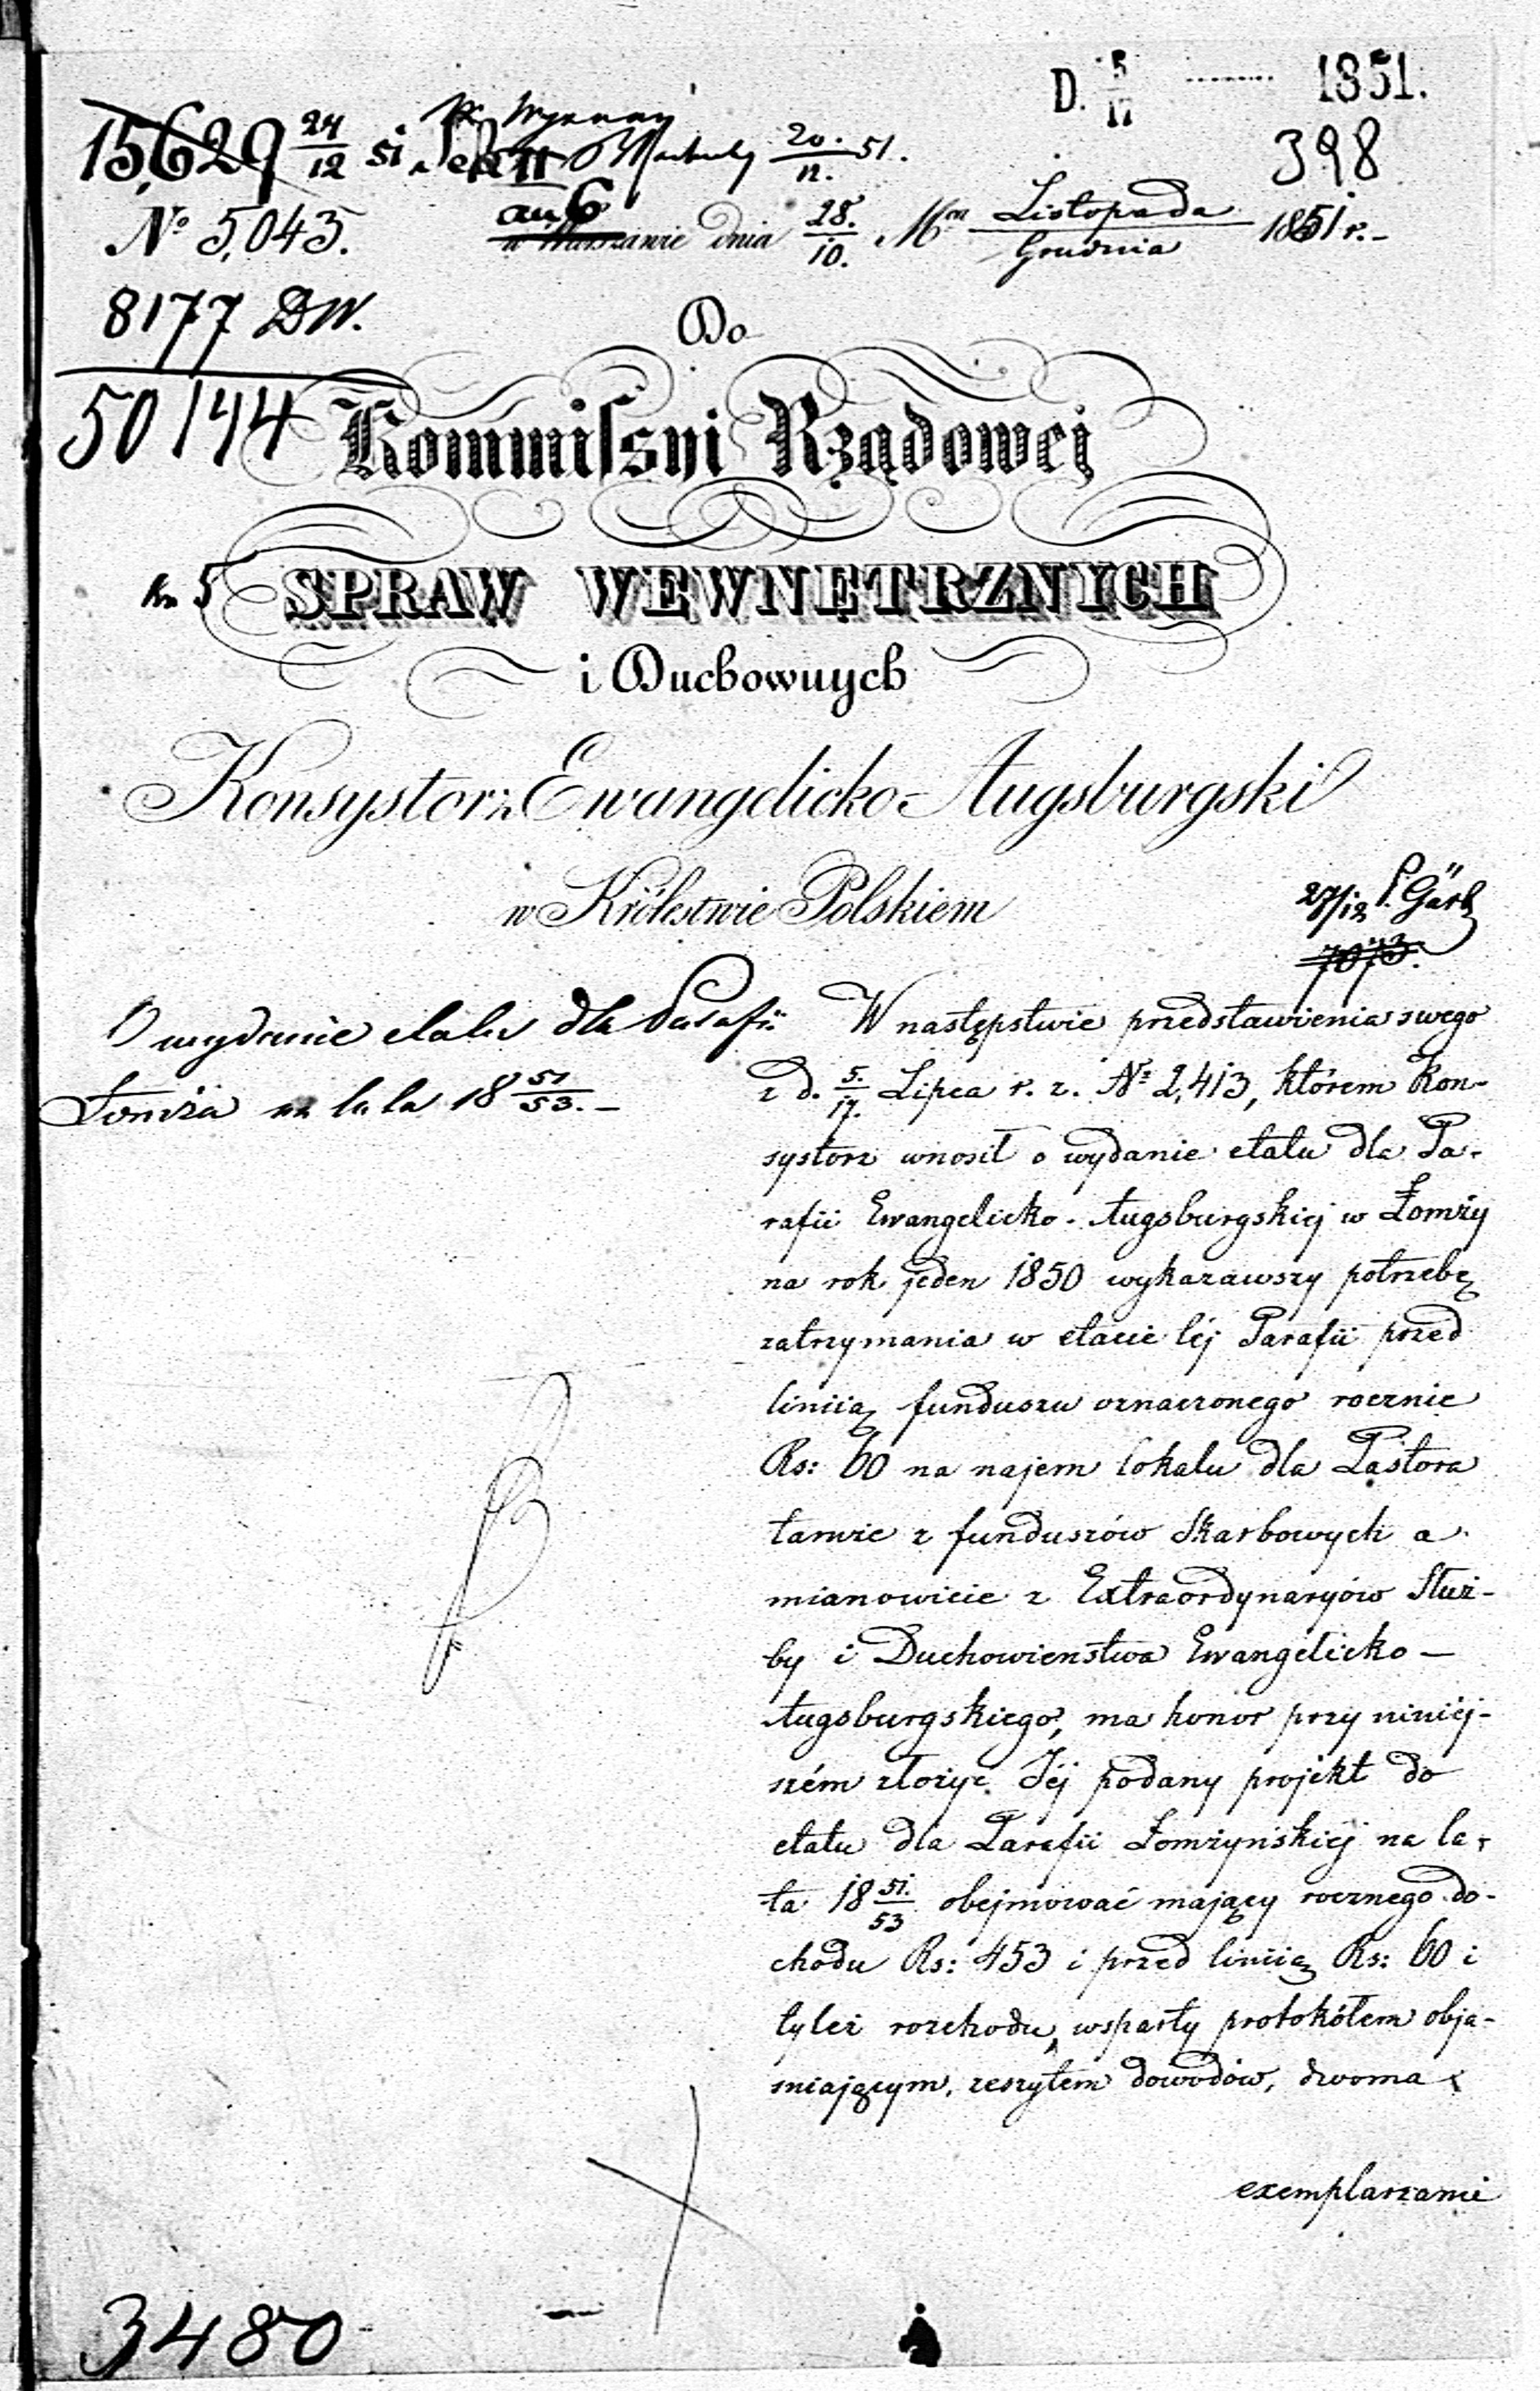 D. 5/17 ........ 1851.
15,629 24/12 51
20/12. 51.
398
No 5,043.
w Warszawie dnia 28./10. Mca Listopada/Grudnia 1851 r.-
8177 DW.
50144
Do
Kommissyi Rządowej
SPRAW WEWNĘTRZNYCH
i Duchownych
Konsystorz Ewangelicko-Augsburgski
w Królestwie Polskiem
27/12
7073.
O wydanie etatu dla Parafii
Łomża na lata 18 51/53.-
W następstwie przedstawienia swego
z d. 5./17. Lipca r. z. No 2,413, którem Kon-
systorz wnosił o wydanie etatu dla Pa-
rafii Ewangelicko-Augsburgskiej w Łomży
na rok jeden 1850 wykazawszy potrzebę
zatrzymania w etacie téj Parafii przed
liniią funduszu oznaczonego rocznie
Rs: 60 na najem lokalu dla Pastora
tamże z funduszów Skarbowych a
mianowicie z Extraordynaryów Służ-
by i Duchowieństwa Ewangelicko-
Augsburgskiego, ma honor przy niniéj-
szém złożyć Jéj podany projekt do
etatu dla Parafii Łomżyńskiej na la-
ta 18 51./53 obejmować mający rocznego do-
chodu Rs: 453 i przed liniią Rs: 60 i
tyleż rozchodu, wsparty protokółem obja-
śniającym, zeszytem dowodów, dwoma
exemplarzami
3480